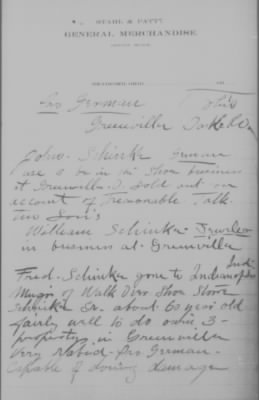 STAHL & PATTY
GENERAL MERCHANDISE.
Pro German Ohio
Greenville Darke Co
John Schinke German
use to be in the Shoe business
at Greenville O. Sold out on
account of Treasonable Talk
Two Son's
William Schinke Jeweler
in business at Greenville
Fred Schinke gone to Indianapolis Ind
Mng'r of Walk Over Shoe Store
Schinke Sr. about 60 year old
fairly well to do owns 3
property in Greenville
Very Rabid Pro German
Capable of doing damage